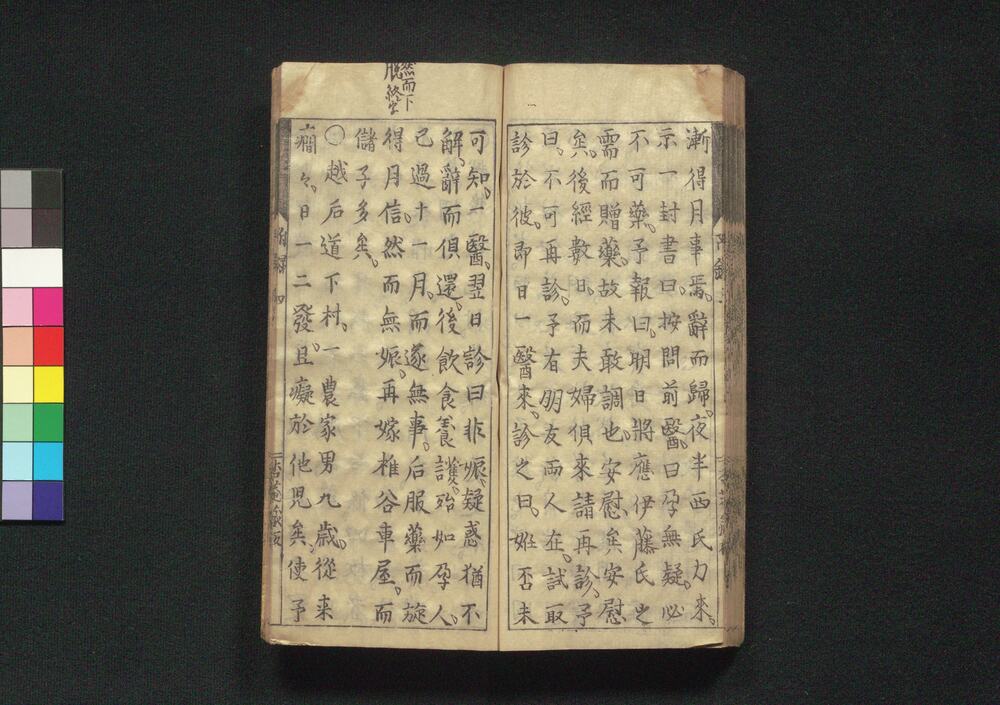 漸得月事焉。辭而歸。夜半西氏力來。
示一封書曰。按問前醫。曰孕無疑。必
不可藥。予報曰。明日將應伊藤氏之
需而贈藥。故未敢調也。安慰矣安慰
矣。後經數日。而夫婦俱來請再診。予
曰。不可再診。予有朋友兩人在。試取
診於彼。即日一醫來。診之曰。姙否未
可知。一醫翌日診曰非娠。疑惑猶不
解。辭而俱還。後飲食養護。殆如孕人。
已過十一月。而遂無事。后服藥而旋
得月信。然而無娠。再嫁椎谷車屋。而
儲子多矣。
○越后道下村。一農家男九歲。從來
癇々。日一二發。且癡於他兒矣。使予
然而下
脫終字
附錄
附錄 四